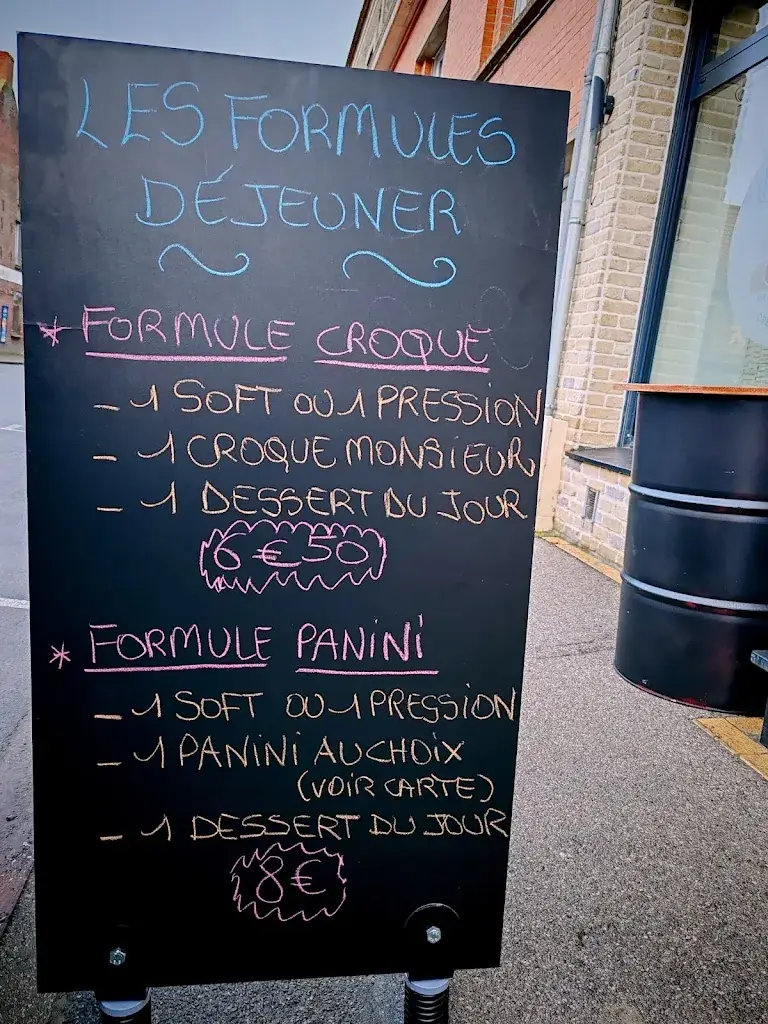 LES FORMULES
DÉJEUNER
* FORMULE CROQUE
- 1 SOFT OU 1 PRESSION
- 1 CROQUE MONSIEUR
- 1 DESSERT DU JOUR
6€50
* FORMULE PANINI
- 1 SOFT OU 1 PRESSION
- 1 PANINI AU CHOIX
(VOIR CARTE)
- 1 DESSERT DU JOUR
8€